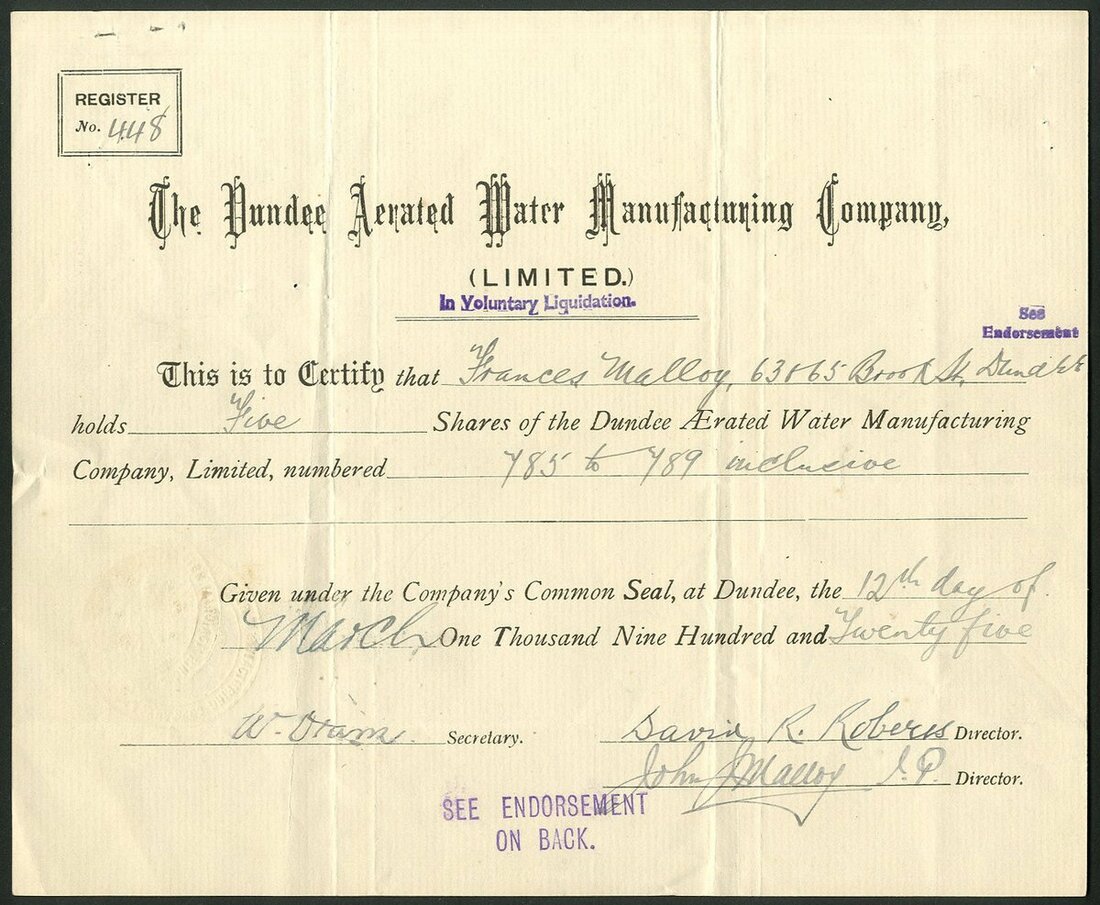 REGISTER
No. 448
The Dundee Aerated Water Manufacturing Company,
(LIMITED.)
In Voluntary Liquidation.
See
Endorsement
This is to Certify that Frances Malloy, 63 & 65 Brook St, Dundee
holds Five Shares of the Dundee Ærated Water Manufacturing
Company, Limited, numbered 785 to 789 inclusive
Given under the Company's Common Seal, at Dundee, the 12th day of
March One Thousand Nine Hundred and Twenty five
W. Secretary. David R. Roberts Director.
John J Malloy J.P. Director.
SEE ENDORSEMENT
ON BACK.